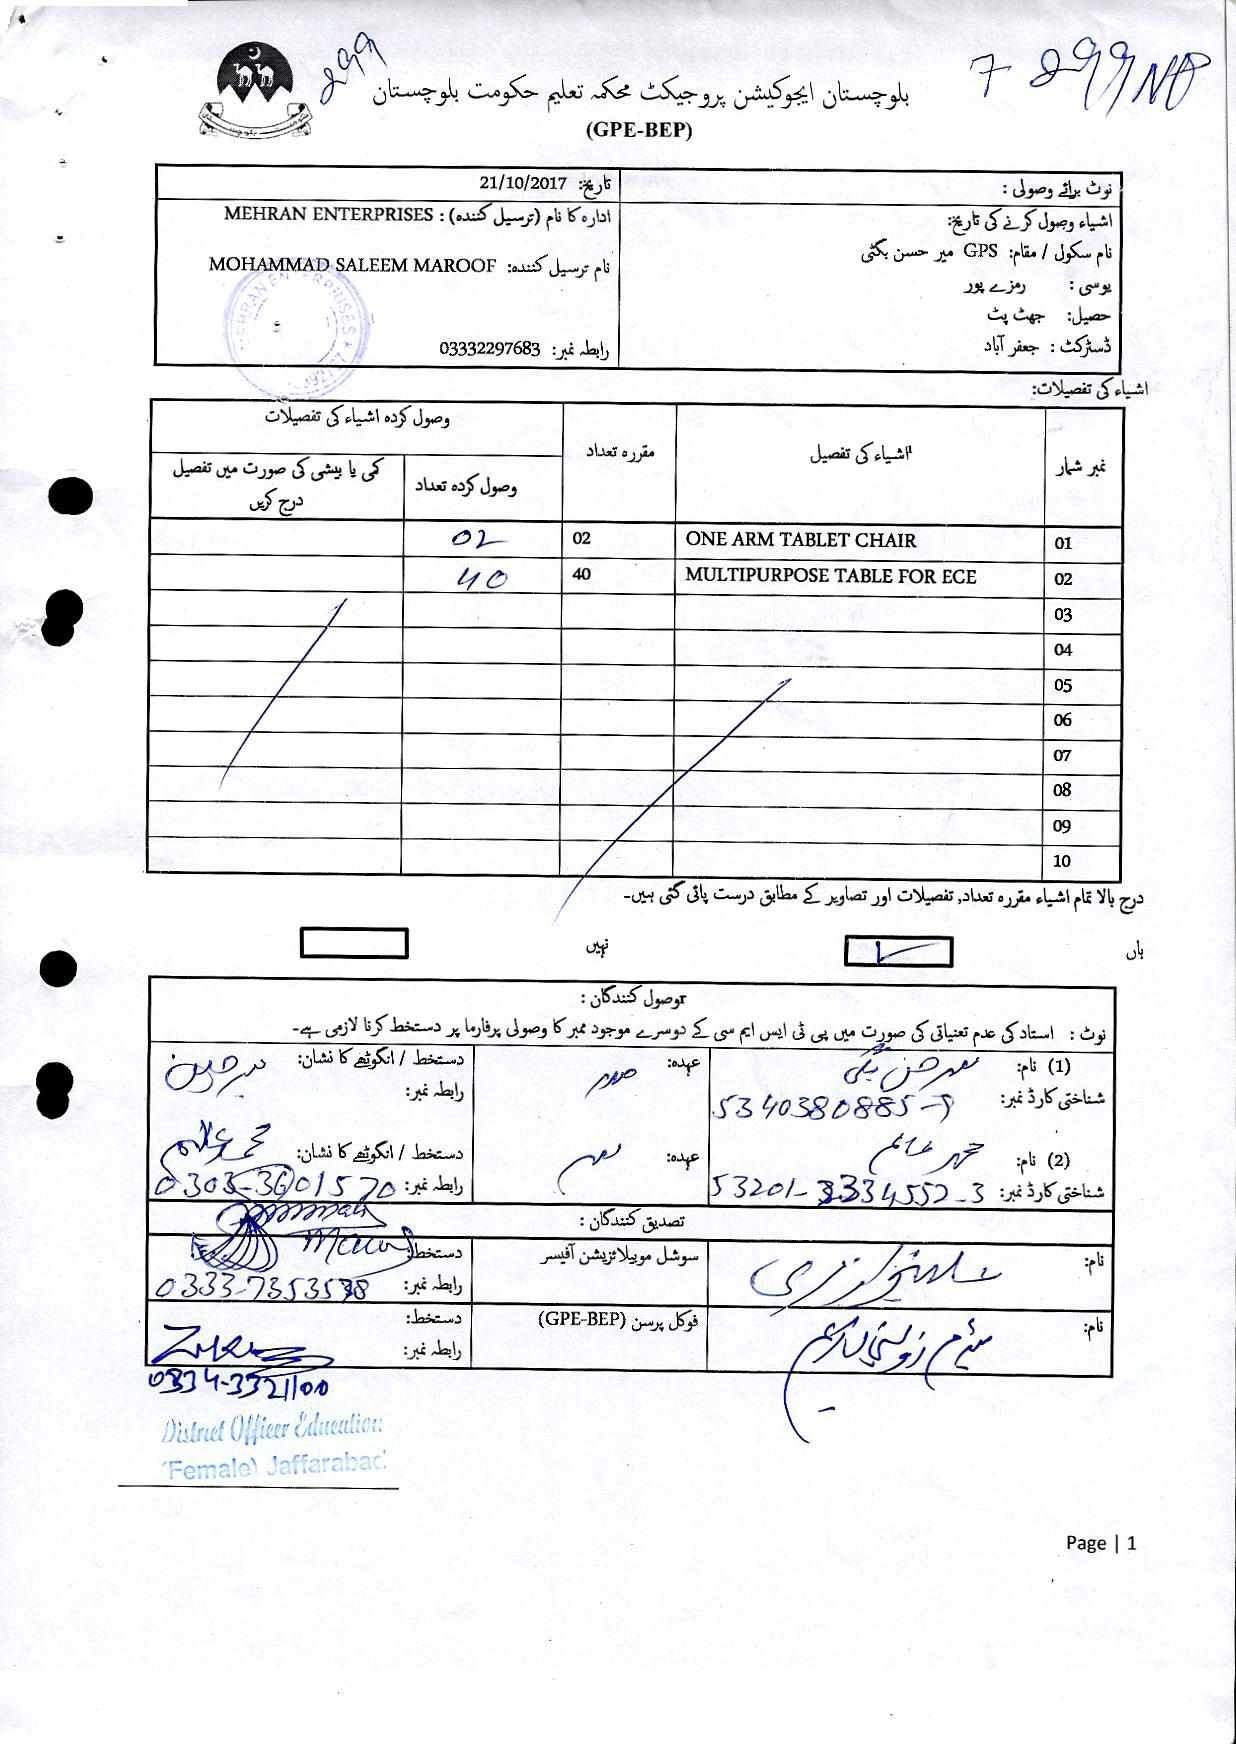 899
7 899 NP
بلوچستان ایجوکیشن پروجیکٹ محکمہ تعلیم حکومت بلوچستان
(GPE-BEP)
نوٹ برائے وصولی :
تاریخ: 21/10/2017
اشیاء وصول کرنے کی تاریخ:
ادارہ کا نام (ترسیل کنندہ) : MEHRAN ENTERPRISES
نام سکول / مقام: GPS میر حسن بگٹی
نام ترسیل کنندہ: MOHAMMAD SALEEM MAROOF
یوسی : رمزے پور
حصیل: جھٹ پٹ
ڈسٹرکٹ : جعفر آباد
رابطہ نمبر: 03332297683
MEHRAN ENTERPRISES
اشیاء کی تفصیلات:
نمبر شمار
اشیاء کی تفصیل
مقررہ تعداد
وصول کردہ اشیاء کی تفصیلات
وصول کردہ تعداد
کمی یا بیشی کی صورت میں تفصیل درج کریں
01 ONE ARM TABLET CHAIR 02 02
02 MULTIPURPOSE TABLE FOR ECE 40 40
03
04
05
06
07
08
09
10
درج بالا تمام اشیاء مقررہ تعداد, تفصیلات اور تصاویر کے مطابق درست پائی گئی ہیں۔
ہاں
نہیں
وصول کنندگان :
نوٹ : استاد کی عدم تعیناتی کی صورت میں پی ٹی ایس ایم سی کے دوسرے موجود ممبر کا وصولی پرفارما پر دستخط کرنا لازمی ہے۔
(1) نام: میر حسن بگٹی
عہدہ: صدر
دستخط / انگوٹھے کا نشان:
شناختی کارڈ نمبر: 5340380885-9
رابطہ نمبر:
(2) نام: محمد عالم
عہدہ: ممبر
دستخط / انگوٹھے کا نشان:
شناختی کارڈ نمبر: 53201-3334552-3
رابطہ نمبر: 0303-3601570
تصدیق کنندگان :
نام:
سوشل موبیلائزیشن آفیسر
دستخط:
رابطہ نمبر: 0333-7353538
نام:
فوکل پرسن (GPE-BEP)
دستخط:
رابطہ نمبر:
0334-3321100
District Officer Education
(Female) Jaffarabad
Page | 1